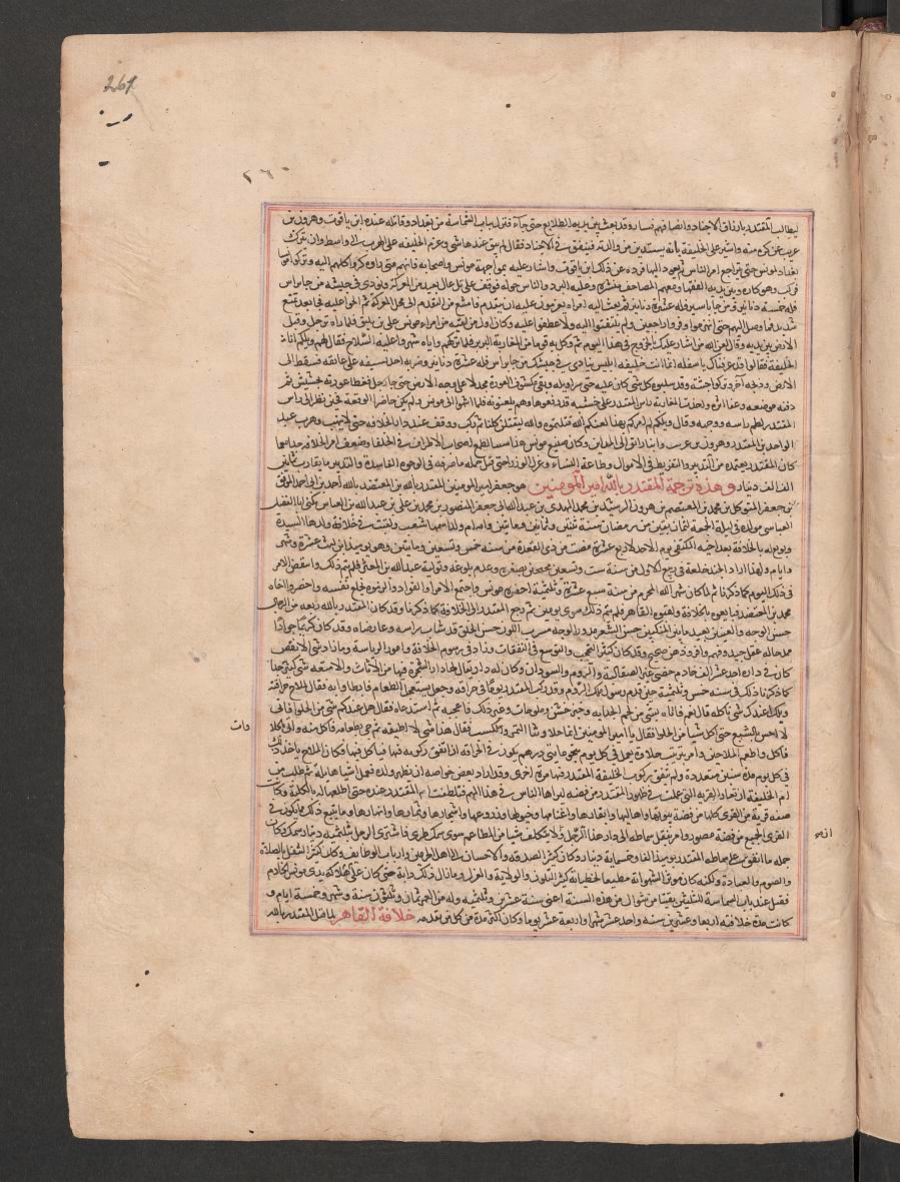 261
٢٦٠
يطالب المقتدر بارزاق الاجناد وانضاف
غريب عن كره منه واشير على الخليفة بانه يستدين من والدته فينفق في الاجناد فقال لم يبق عندها شي وعزم الخليفة على الهرب الى واسط وان يترك
بغداد لمونس حتى يتراجع امر الناس ثم يعود اليها فرده عن ذلك ابن ياقوت واشار عليه بمواجهة مونس واصحابه فانهم متى راوه كروا كلهم اليه وتركوا مونسا
فركب وهو كاره وبين يديه الفقها ومعهم المصاحف منشورة وعليه البردة والناس حوله فوقف على تل عال بعيد من المعركة ونودي في جيشه من جا براس
فله خمسة دنانير ومن جا باسير فله عشرة دنانير ثم بعث اليه امراه يعزمون عليه ان يتقدم فامتنع من التقدم الى محل المعركة ثم الحوا عليه فجا بعد تمنع
شديد فما وصل اليهم حتى انهزموا وفروا راجعين ولم يلتفتوا اليه ولا عطفوا عليه وكان اول من لقيه من امراء مونس علي بن بليق فلما راه ترجل وقبل
الارض بين يديه وقال لعن الله من اشار عليك بالخروج في هذا اليوم ثم وكل به قوما من المغاربة البربر فلما تركهم واياه شهروا عليه السلاح فقال لهم ويلكم انا
الخليفة فقالوا قد عرفناك يا سفله انما انت خليفة ابليس تنادي في جيشك من جا براس فله عشرة دنانير وضربه احدهم بسيفه على عاتقه فسقط الى
الارض وذبحه اخر وتركوا جثته وقد سلبوه كل شي كان عليه حتى سراويله وبقي مكشوف العورة مجدلا على وجه الارض حتى جا رجل فغطا عورته بحشيش ثم
دفنه في موضعه وعفا اثره واخذت المغاربة راس المقتدر على خشبة قد رفعوها وهم يلعنونه فلما انتهوا الى مونس ولم يكن حاضرا الوقعة فحين نظر الى راس
المقتدر لطم راسه ووجهه وقال ويلكم لم امركم بهذا لعنكم الله قتلتموه والله لنقتلن كلنا ثم ركب ووقف عند دار الخلافة حتى لا تنهب وهرب عبد
الواحد بن المقتدر وهرون بن غريب وابنا رايق الى المداين وكان صنيع مونس هذا سببا لطمع اصحاب الاطراف في الخلفا وضعف امر الخلافة جدا مع ما
كان المقتدر يعتمده من التبذير والتفريط في الاموال وطاعة النساء وعزل الوزرا حتى قيل جملة ما صرفه في الوجوه الفاسدة والتبذير ما يقارب ثمانين
الف الف دينار وهذه ترجمة المقتدر بالله امير المومنين هو جعفر امير المومنين المقتدر بالله بن المعتضد بالله احمد بن ابي احمد الموفق
بن جعفر المتوكل بن محمد بن المعتصم بن هرون الرشيد بن محمد المهدي بن عبد الله ابي جعفر المنصور بن محمد بن علي بن عبد الله بن العباس يكنى ابا الفضل
العباسي مولده في ليلة الجمعة لثمان بقين من رمضان سنة ثنتين وثمانين ومايتين وامه ام ولد اسمها شعب ولقبت في خلافة ولدها السيدة
وبويع له بالخلافة بعد اخيه المكتفي يوم الاحد لاربع عشرة مضت من ذي القعدة من سنه خمس وتسعين ومايتين وهو يوميذ ابن ثلث عشرة وشهر
وايام ولهذا اراد الجند خلعه في ربيع الاول من سنة ست وتسعين محتجين بصغره وعدم بلوغه وتولية عبد الله بن المعتز فلم يتم ذلك وانتقض الامر
في ذلك اليوم كما ذكرنا ثم لما كان شهر الله المحرم من سنة سبع عشرة وثلثمية احضره مونس واجتمع الامرا والقواد والزموه بخلع نفسه واحضروا اخاه
محمد بن المعتضد فبايعوه بالخلافة ولقبوه القاهر فلم يتم ذلك سوى يومين ثم رجع المقتدر الى الخلافة كما ذكرنا وقد كان المقتدر بالله ربعة من الرجال
حسن الوجه والعينين بعيد ما بين المنكبين حسن الشعر مدور الوجه مشرب اللون حسن الخلق قد شاب راسه وعارضاه وقد كان كريما جوادا
ممدحا له عقل جيد وفهم وافر وذهن صحيح وقد كان كثير التحجب والتوسع في النفقات وزاد في رسوم الخلافة وامور الرياسة وما زاد شي الا نقص
كان في داره احد عشر الف خادم خصي غير الصقالبة والروم والسودان وكان له دار يقال لها دار الشجرة فيها من الاثاث والامتعة شي كثير جدا
كما ذكرنا ذلك في سنه خمس وثلثمية حين قدم رسول ملك الروم وقد ركب المقتدر يوما في حراقه وجعل يستعجل الطعام فابطاوا به فقال للملاح حراقته
ويلك اعندك شي ناكله قال نعم فاتاه بشي من لحم الجدايه وخبز خشن وملوحات وغير ذلك فاعجبه ثم استدعاه فقال هل عندك شي من الحلوا فاني
لا احس بالشبع حتى اكل شيا من الحلوا فقال يا امير المومنين انما حلاوتنا التمر والكسب فقال هذا شي لا اطيقه ثم جي بطعامه فاكل منه واتي بالحلاوات
فاكل واطعم الملاحين وامر بترتيب حلاوة تعمل في كل يوم بنحو مايتي درهم تكون في الحراقة ان اتفق ركوبه فيها فياكل فيها فكان الملاح ياخذ ذلك
في كل يوم مدة سنين متعددة ولم يتفق ركوب الخليفة المقتدر فيها مرة اخرى وقد اراد بعض خواصه ان يطهر ولده فعمل اشيا هائلة ثم طلب من
ام الخليفة ان تعار القرية التي عملت في طهور المقتدر من فضه ليراها الناس في هذا المهم فتلطفت ام المقتدر عنده حتى اطلقها له بالكلية وكانت
صفه قرية من القرى كلها من فضه بيوتها واهاليها وابقارها واغنامها وخيولها وزروعها واشجارها وثمارها وانهارها وما يتبع ذلك مما يكون في
القرى الجميع من فضة مصور وامر بنقل سماطه الى دار هذا الرجل ولا تتكلف شيا من المطاعم سوى سمك طري فاشترى الرجل بثلثمية دينار سمك وكان
جملة ما انفق على سماط المقتدر يوميذ الفا وخمسماية دينار وكان كثير الصدقه والاحسان الى اهل الحرمين وارباب الوظايف وكان كثير التنفل بالصلاة
والصوم والعبادة ولكنه كان موثرا لشهواته مطيعا لحظاياه كثير التلون والولاية والعزل وما زال ذلك دابه حتى كان هلاكه على يدي مونس الخادم
فقتل عند باب الشماسية لليلتين بقيتا من شوال من هذه السنة اعني سنة عشرين وثلثميه وله من العمر ثمان وثلثون سنة وشهر وخمسة ايام و
كانت مدة خلافته اربعا وعشرين سنه واحد عشر شهرا واربعة عشر يوما وكان اكثر مدة من كل من تقدمه خلافة القاهر لما قتل المقتدر بالله
وات